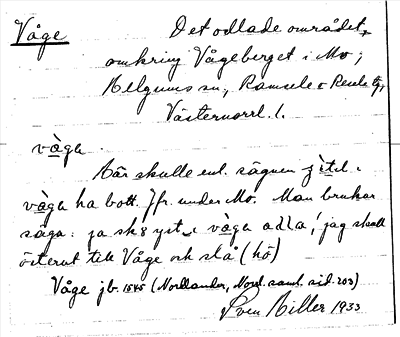 Våge
Det odlade området
omkring Vågeberget i Mo;
Helgums sn., Ramsele o Resele tg,
Västernorrl. l.
våga
Här skulle enl. sägnen
våga ha bott. Jfr. under Mo. Man brukar
säga: ja våga adla, ' jag skall
österut till Våge och slå' (hö)
Våge jb. 1545 (Nordlander, Norrl. saml. sid. 203)
Sven Hiller 1933